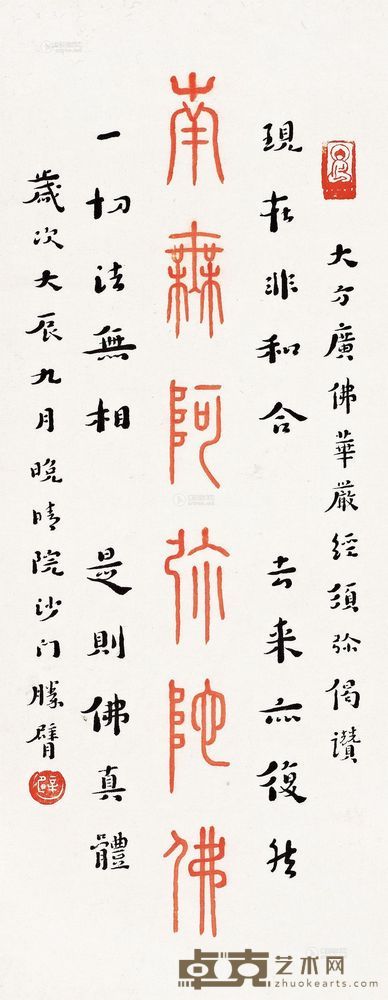 大方廣佛華嚴經須弥偈讚
現在非和合 去来亦復然
南無阿弥陀佛
一切法無相 是則佛真體
歲次大辰九月晚晴院沙门勝臂
卓克艺术网
www.zhuokearts.com